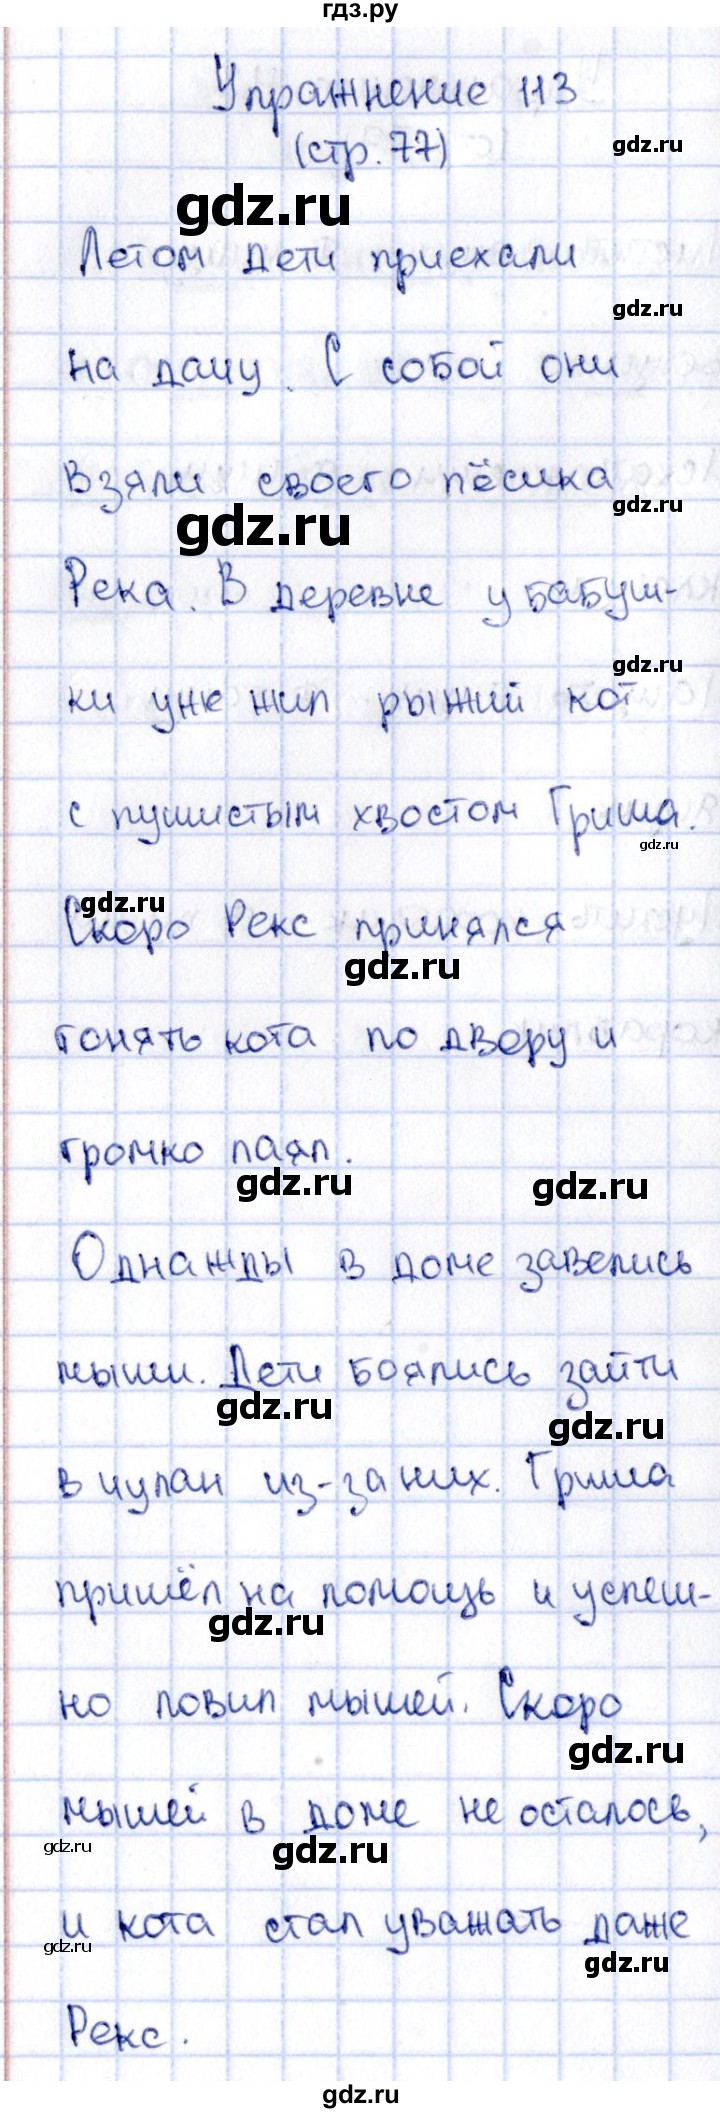 гдз.ру
Упражнение 113
gdz.ru
(стр. 77)
gdz.ru
Летом дети приехали
gdz.ru
на дачу. С собой они
взяли своего пёсика
gdz.ru
gdz.ru
Река. В деревне у бабуш-
gdz.ru
ки уже жил рыжий кот
с пушистым хвостом Гриша.
gdz.ru
gdz.ru
Скоро Рекс принялся
gdz.ru
гонять кота по двору и
громко лаял.
gdz.ru
gdz.ru
Однажды в доме завелись
мыши. Дети боялись зайти
gdz.ru
gdz.ru
в чулан из-за них. Гриша
пришёл на помощь и успеш-
gdz.ru
но ловил мышей. Скоро
gdz.ru
мышей в доме не осталось,
gdz.ru
gdz.ru
и кота стал уважать даже
gdz.ru
gdz.ru
Рекс.
gdz.ru